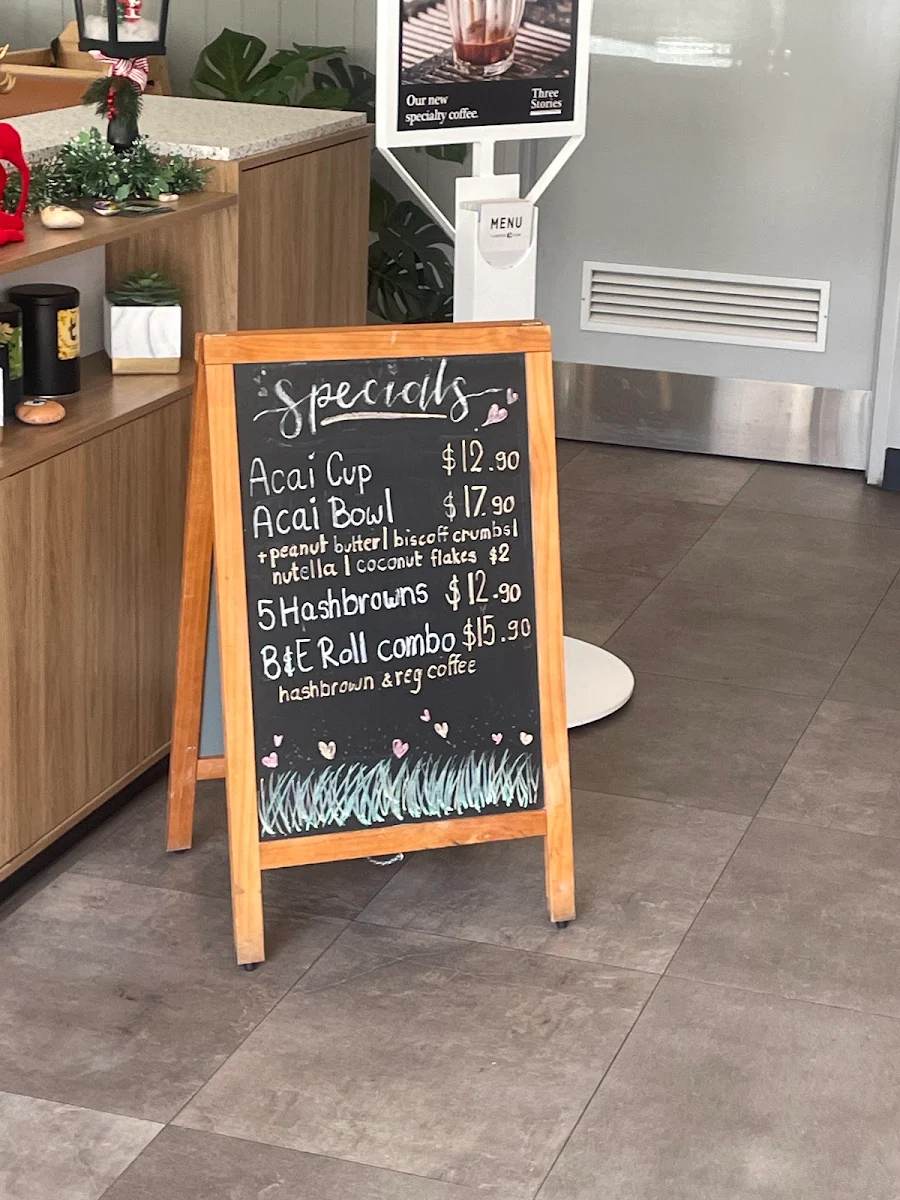 Our new
specialty coffee.
Three
Stories
MENU
Specials
Acai Cup $12.90
Acai Bowl $17.90
+peanut butter| biscoff crumbs|
nutella | coconut flakes $2
5 Hashbrowns $12.90
B&E Roll combo $15.90
hashbrown & reg coffee